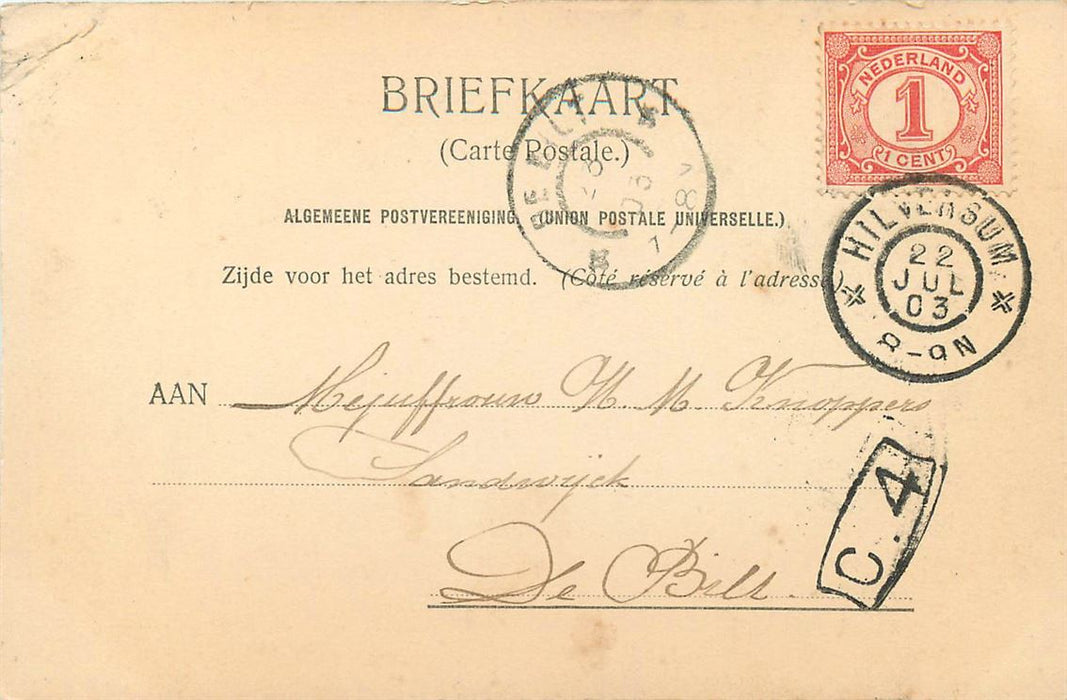 BRIEFKAART
(Carte Postale.)
ALGEMEENE POSTVEREENIGING. (UNION POSTALE UNIVERSELLE.)
Zijde voor het adres bestemd. (Côté réservé à l'adresse.)
NEDERLAND
1
1 CENT
DE BILT
23
03
7-8V
HILVERSUM
22
JUL
03
8-9N
AAN Mejuffrouw H. M. Knoppers
Sandwijck
De Bilt.
C.4